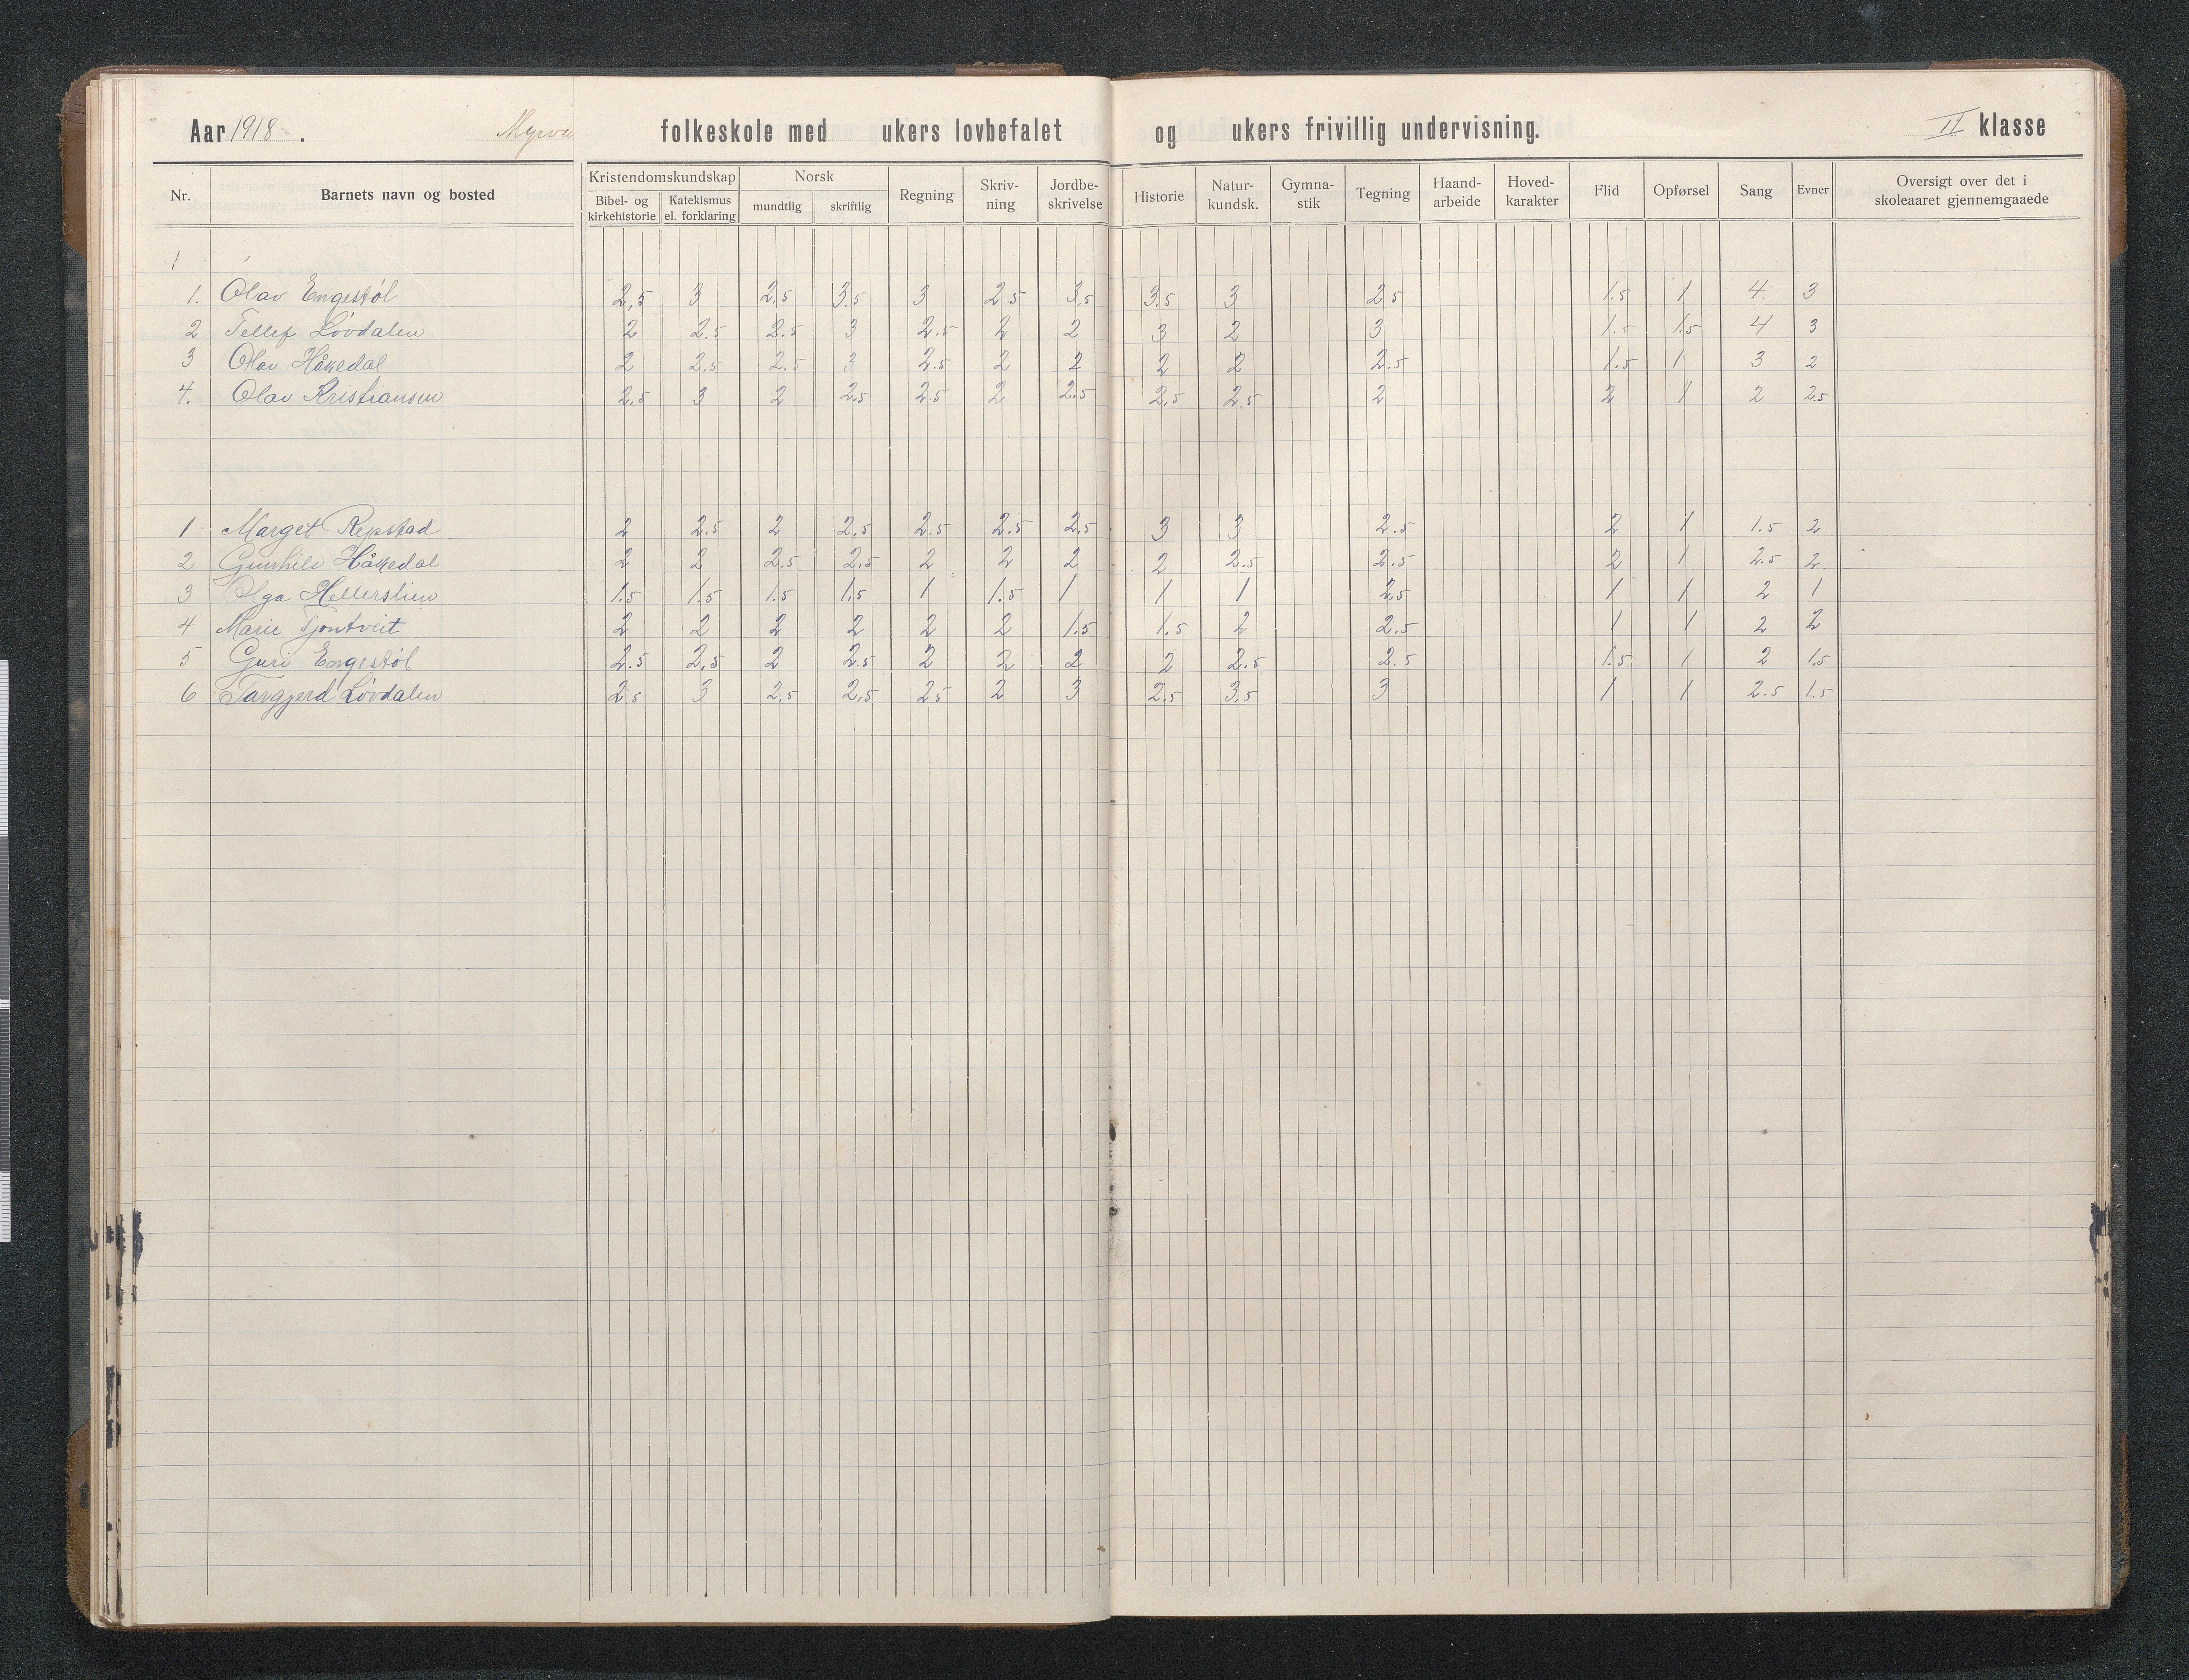 Aar 1918 . Myrva folkeskole med ukers lovbefalet og ukers frivillig undervisning. II klasse
Nr. Barnets navn og bosted Kristendomskundskap Bibel- og kirkehistorie Katekismus el. forklaring Norsk mundtlig skriftlig Regning Skriv-ning Jordbe-skrivelse Historie Natur-kundsk. Gymna-stik Tegning Haand-arbeide Hoved-karakter Flid Opførsel Sang Evner Oversigt over det i skoleaaret gjennemgaaede
1
1. Olav Engestøl 2,5 3 2.5 3.5 3 2.5 3,5 3.5 3 2.5 1.5 1 4 3
2 Tellef Løvdalen 2 2.5 2.5 3 2.5 2 2 3 2 3 1.5 1.5 4 3
3 Olav Håkedal 2 2.5 2.5 3 2.5 2 2 2 2 2.5 1.5 1 3 2
4. Olav Kristiansen 2.5 3 2 2.5 2.5 2 2.5 2.5 2.5 2 2 1 2 2.5
1 Marget Repstad 2 2.5 2 2.5 2.5 2.5 2.5 3 3 2.5 2 1 1.5 2
2 Gunhild Håkedal 2 2 2.5 2.5 2 2 2 2 2.5 2.5 2 1 2.5 2
3 Olga Hellerslien 1.5 1.5 1.5 1.5 1 1.5 1 1 1 2.5 1 1 2 1
4 Marie Tjøntveit 2 2 2 2 2 2 1.5 1.5 2 2.5 1 1 2 2
5 Guri Engestøl 2.5 2,5 2 2.5 2 2 2 2 2.5 2.5 1.5 1 2 1.5
6 Targjerd Løvdalen 2.5 3 2.5 2.5 2.5 2 3 2.5 3.5 3 1 1 2.5 1.5